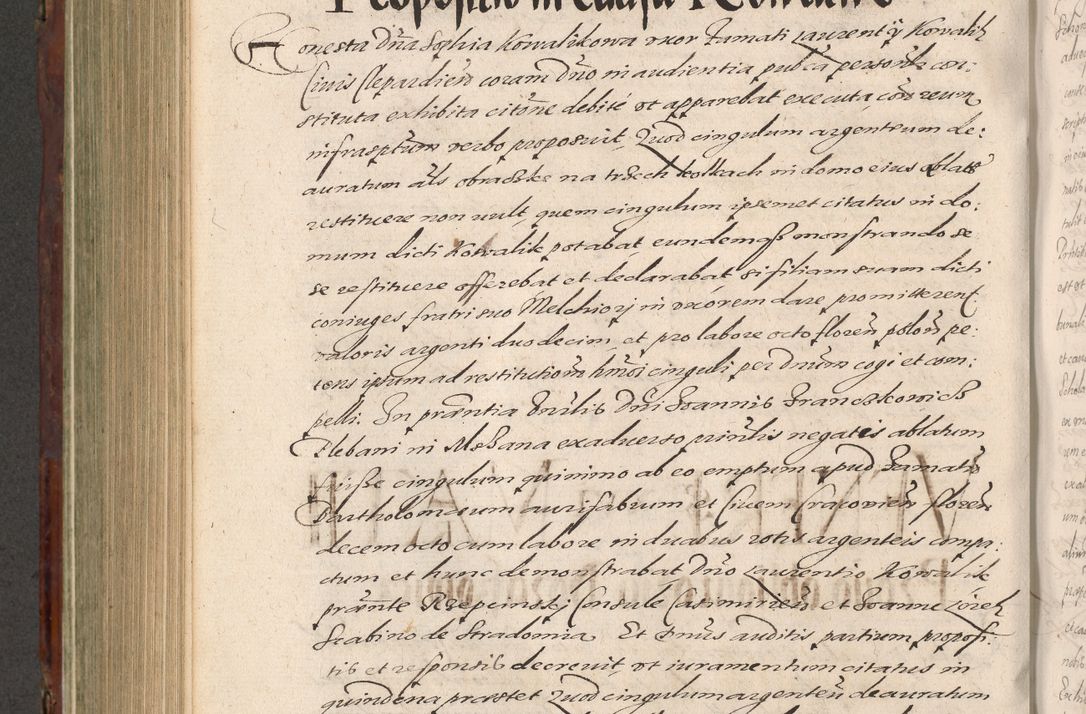 Propositio in causa
Honesta Dña Sophia Kowalikowa uxor Famati Laurentÿ Kowalik
Civis Clepardien̄ coram Dño in audientia pub̄ca person̄lr con:
stituta exhibita cito̅ne debite ut apparebat executa con̄tra reum
infrasp̄tum verbo proposuit Quod cingulum argenteum de:
auratum al̄s obraczke na trzech kolkach in domo eius oblatū
restituere non vult, quem cingulum ipsemet citatus in do:
mum dicti Kowalik potabat eundemq̃ monstrando se
se restituere offerebat et declarabat si filiam suam dicti
coniuges fratri suo Melchiorj in uxorem dare promitterent
valoris argenti duodecim, et pro labore octo floren̄ polon̄ pe:
tens ipsum ad restitutionem hm̄oi cinguli per D̄num cogi et com:
pelli. In pr̄æntia Dn̄lis Dñi Joannis Franczkowich
Plebani in Mszana ex adverso principalis negatis ablatum
fuisse cingulum quinimo ab eo emptum apud Famatū
Bartholomæum aurifabrum et Civem Cracovien̄ floren̄
decem octo cum labore in duabus rotis argenteis compa:
ctum et hunc demonstrabat Dño Laurentio Kowalik
præn̄te Rzepcinskj Consule Casimirien̄ et Joanne Lorek
Scabino de Stradomia. Et D̄nus auditis partium proposi:
tis et responsis decrevit, ut iuramentum citatus in
quindena præstet Quod cingulum argenteū deauratum